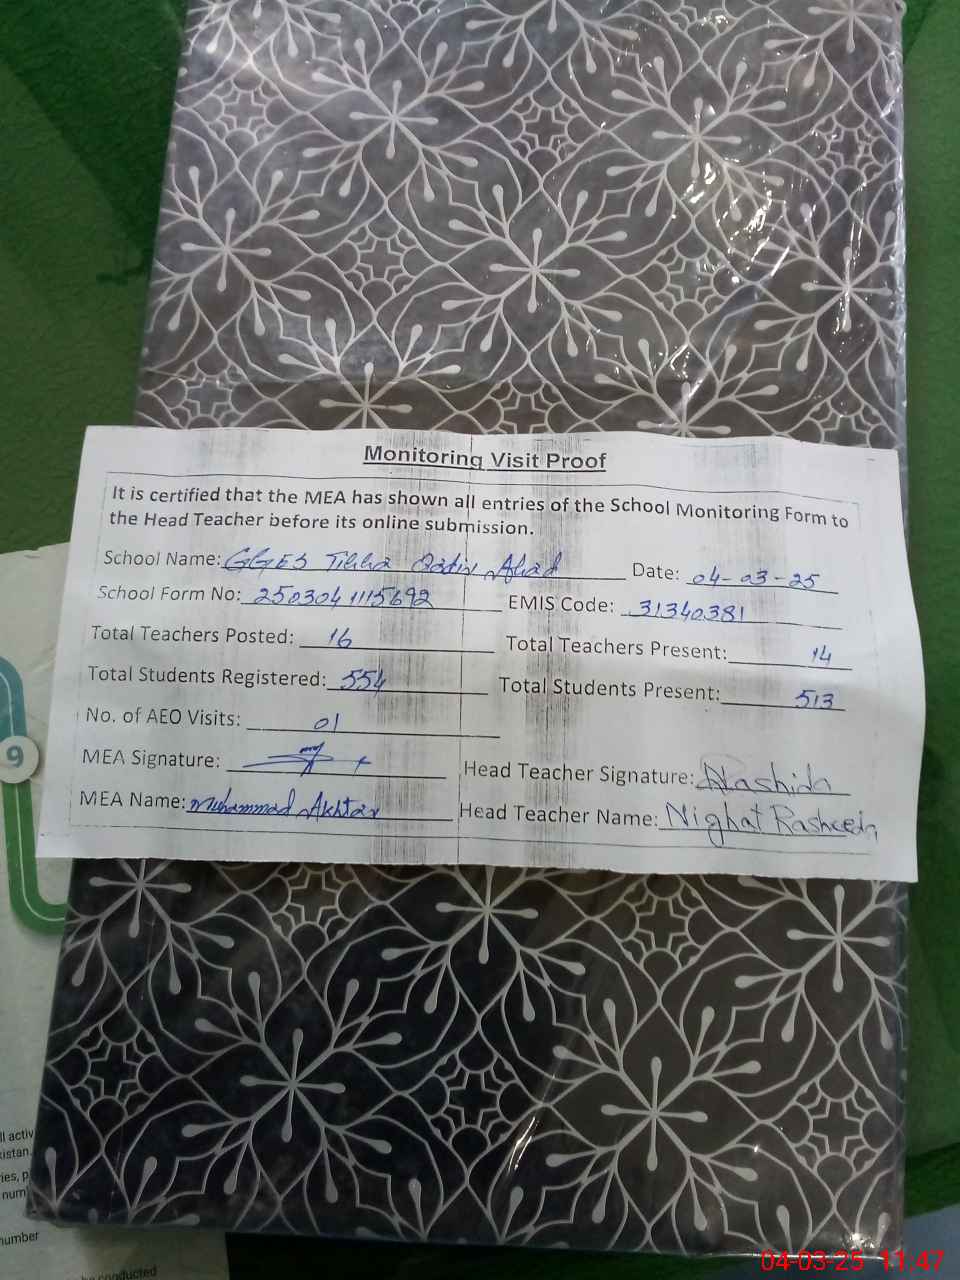 Monitoring Visit Proof
It is certified that the MEA has shown all entries of the School Monitoring Form to
the Head Teacher before its online submission.
School Name: GGES Tibba Qadir Abad Date: 04-03-25
School Form No: 2503041115692 EMIS Code: 31340381
Total Teachers Posted: 16 Total Teachers Present: 14
Total Students Registered: 554 Total Students Present: 513
No. of AEO Visits: 01
MEA Signature: Head Teacher Signature: NRashida
MEA Name: Muhammad Akhtar Head Teacher Name: Nighat Rasheeda
9
ll activ
kistan.
ies, p
num
number
be conducted
04-03-25 11:47